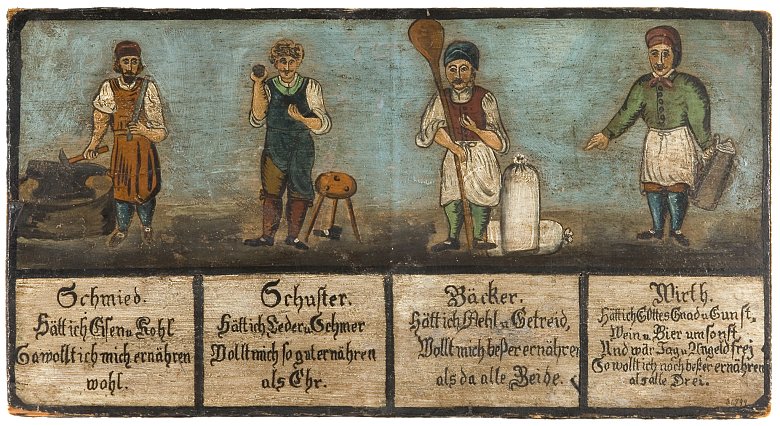 Schmied.
Hätt ich Eisen u. Kohl
So wollt ich mich ernähren
wohl.
Schuster.
Hätt ich Leder u. Schmer
Wollt mich so gut ernähren
als Ehr.
Bäcker.
Hätt ich Mehl u. Getreid,
Wollt mich beßer ernähren
als da alle Beide.
Wirth.
Hätt ich Gottes Gnad u. Gunst,
Wein u. Bier umsonst
Und wär Tag u. Ungeld frei
So wollt ich noch beßer ernähren
als alle Drei.